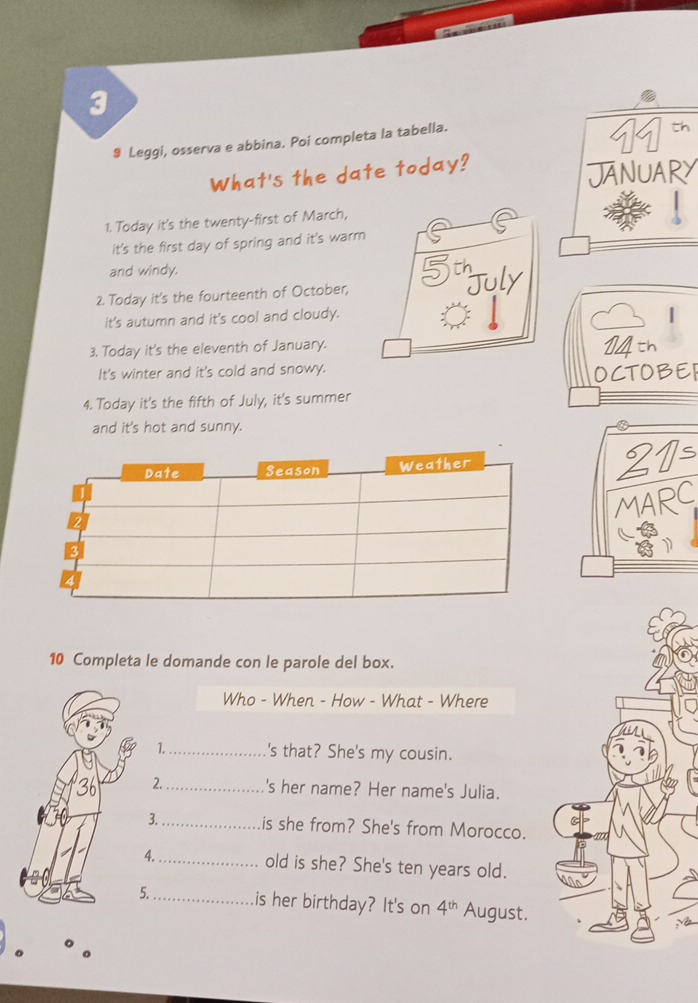 3
9 Leggi, osserva e abbina. Poi completa la tabella.
What's the date today?
1. Today it's the twenty-first of March,
it's the first day of spring and it's warm
and windy.
2. Today it's the fourteenth of October,
it's autumn and it's cool and cloudy.
3. Today it's the eleventh of January.
It's winter and it's cold and snowy.
4. Today it's the fifth of July, it's summer
and it's hot and sunny.
11 th
JANUARY
5th July
14 th
OCTOBER
21s
MARC
Date Season Weather
1
2
3
4
10 Completa le domande con le parole del box.
Who - When - How - What - Where
1. ....................'s that? She's my cousin.
2. ....................'s her name? Her name's Julia.
3. ....................is she from? She's from Morocco.
4. .................... old is she? She's ten years old.
5. ....................is her birthday? It's on 4th August.
36